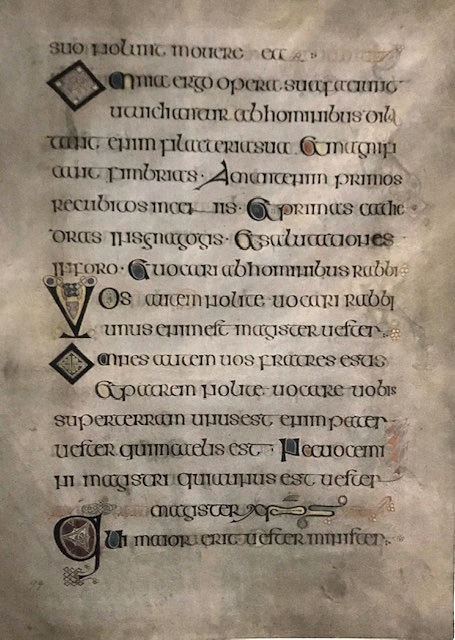 suo nolunt mouere ea
Omnia ergo opera sua faciunt
ut uideantur ab hominibus dila
tant enim filacteria sua Et magnifi
cant fimbrias · Amant enim primos
recubitos in cenis · Et primas cathe
dras in sinagogis · Et salutationes
in foro · Et uocari ab hominibus rabbi
Vos autem nolite uocari rabbi
unus enim est magister uester
Omnes autem uos fratres estis
Et patrem nolite uocare uobis
super terram unus est enim pater
uester qui in caelis est · Nec uocemi
ni magistri quia unus est uester
magister xps
Qui maior erit uester minister